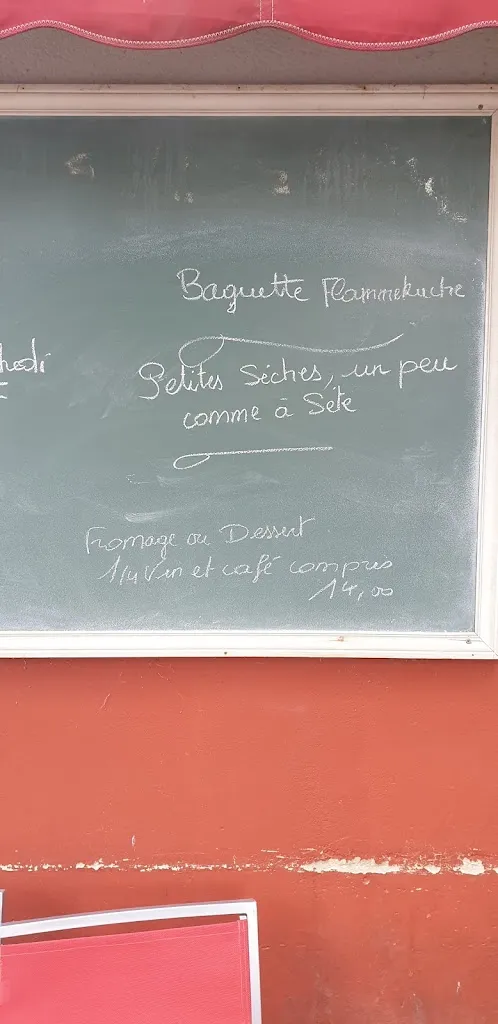 Baguette Flammekuche
Petites Sèches, un peu
comme à Sète
Fromage ou Dessert
1/4 Vin et café compris
14,00